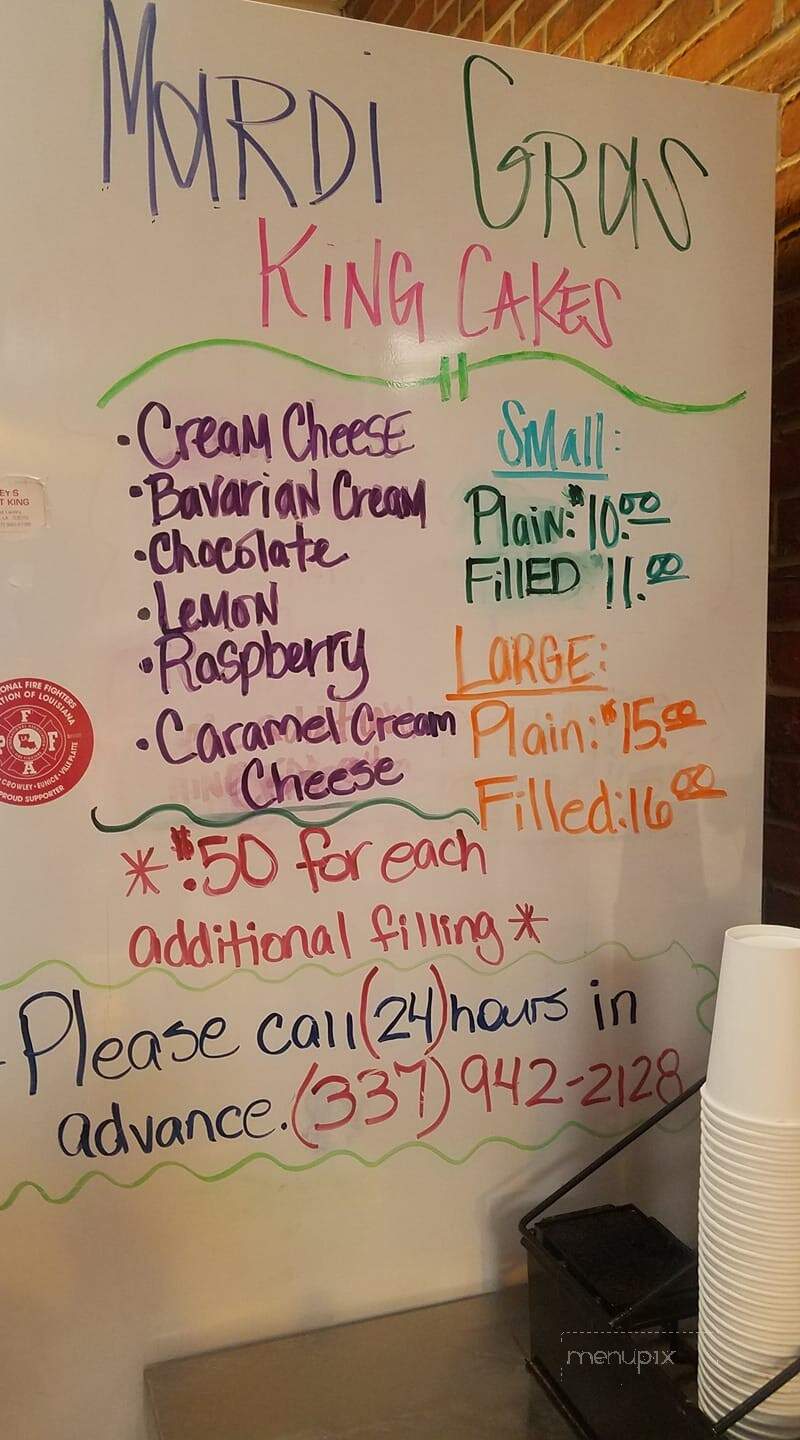 MARDI GRAS
KING CAKES
• Cream Cheese
• Bavarian Cream
• Chocolate
• Lemon
• Raspberry
• Caramel Cream
Cheese
Small:
Plain: $10.00
Filled $11.00
LARGE:
Plain: $15.00
Filled: 16.00
* $.50 for each
additional filling *
Please call (24) hours in
advance. (337) 942-2128
EY'S
T KING
ONAL FIRE FIGHTERS
TION OF LOUISIANA
F
F
A
CROWLEY • EUNICE • VILLE PLATTE
PROUD SUPPORTER
menupix